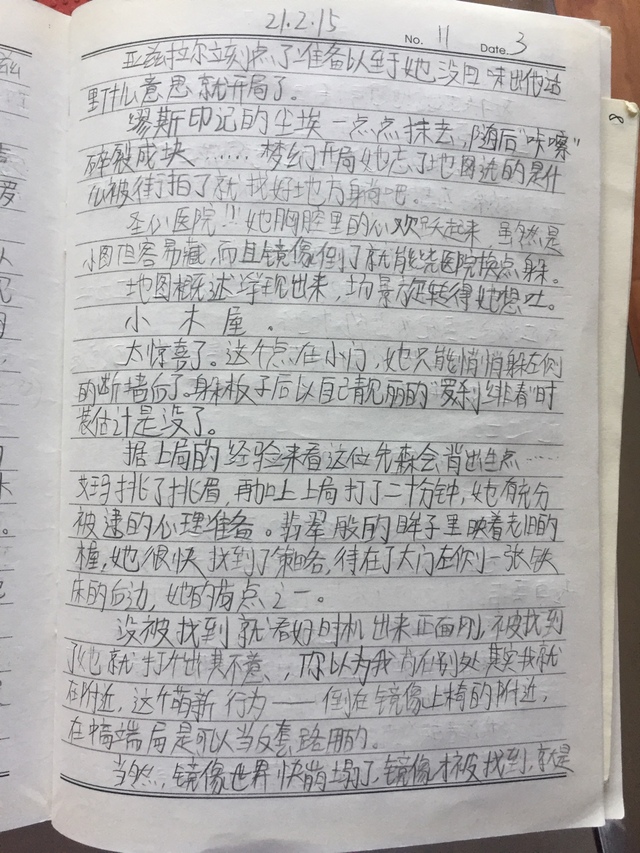 21.2.15
No. 11 Date. 3
亚兹拉尔立刻点了准备以至于她没回味出他话
里什么意思就开局了。
缪斯印记的尘埃一点点抹去,随后“咔嚓”
碎裂成块……梦幻开局她忘了地图选的是什
么被街拍了就找好地方躺吧。
圣心医院!!!她胸腔里的心欢跃起来,虽然是
小图但容易藏,而且镜像倒了就能绕医院换点躲。
地图概述浮现出来,场景旋转得她想吐。
小木屋。
太惊喜了。这个点在小门,她只能悄悄躲左侧
的断墙后了。躲板子后以自己靓丽的“罗刹绯春”时
装估计是没了。
据上局的经验来看这位先森会背出生点……
艾玛挑了挑眉,再加上上局打了二十分钟,她有充分
被逮的心理准备。翡翠般的眸子里映着老旧的
楼,她很快找到了策略,待在了大门左侧一张铁
床的后边,她的苟点之一。
没被找到就看好时机出来正面刚,被找到
了她就打个出其不意、,你以为我在别处其实我就
在附近,这个萌新行为——倒在镜像上椅的附近,
在高端局是可以当反套路用的。
当然,镜像世界快崩塌了,镜像才被找到,就是
8